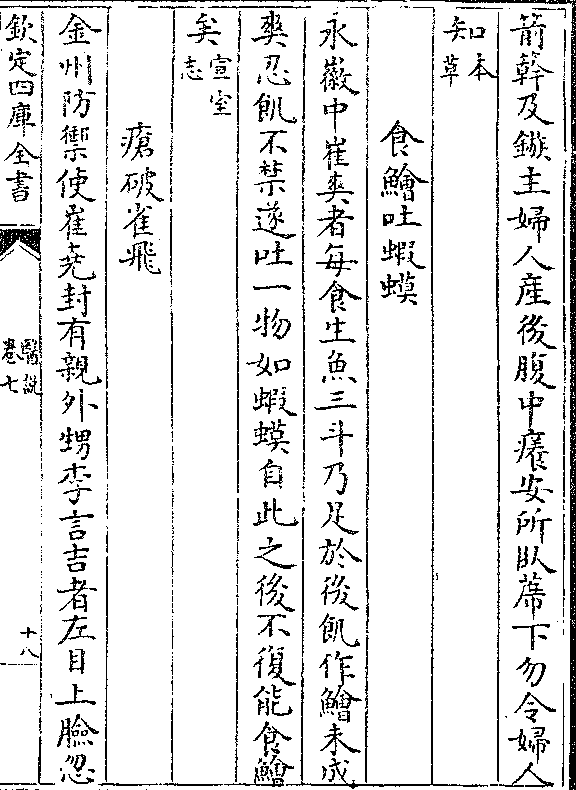 箭幹及鏃主婦人産後腹中癢安所臥席下勿令婦人
知本草
食鱠吐蝦蟆
永徽中崔爽者毎食生魚三斗乃足於後飢作鱠未成
爽忍飢不禁遂吐一物如蝦蟆自此之後不復能食鱠
矣宣室志
瘡破雀飛
金州防禦使崔堯封有親外甥李言吉者左目上臉忽
欽定四庫全書
醫説
卷七
十八